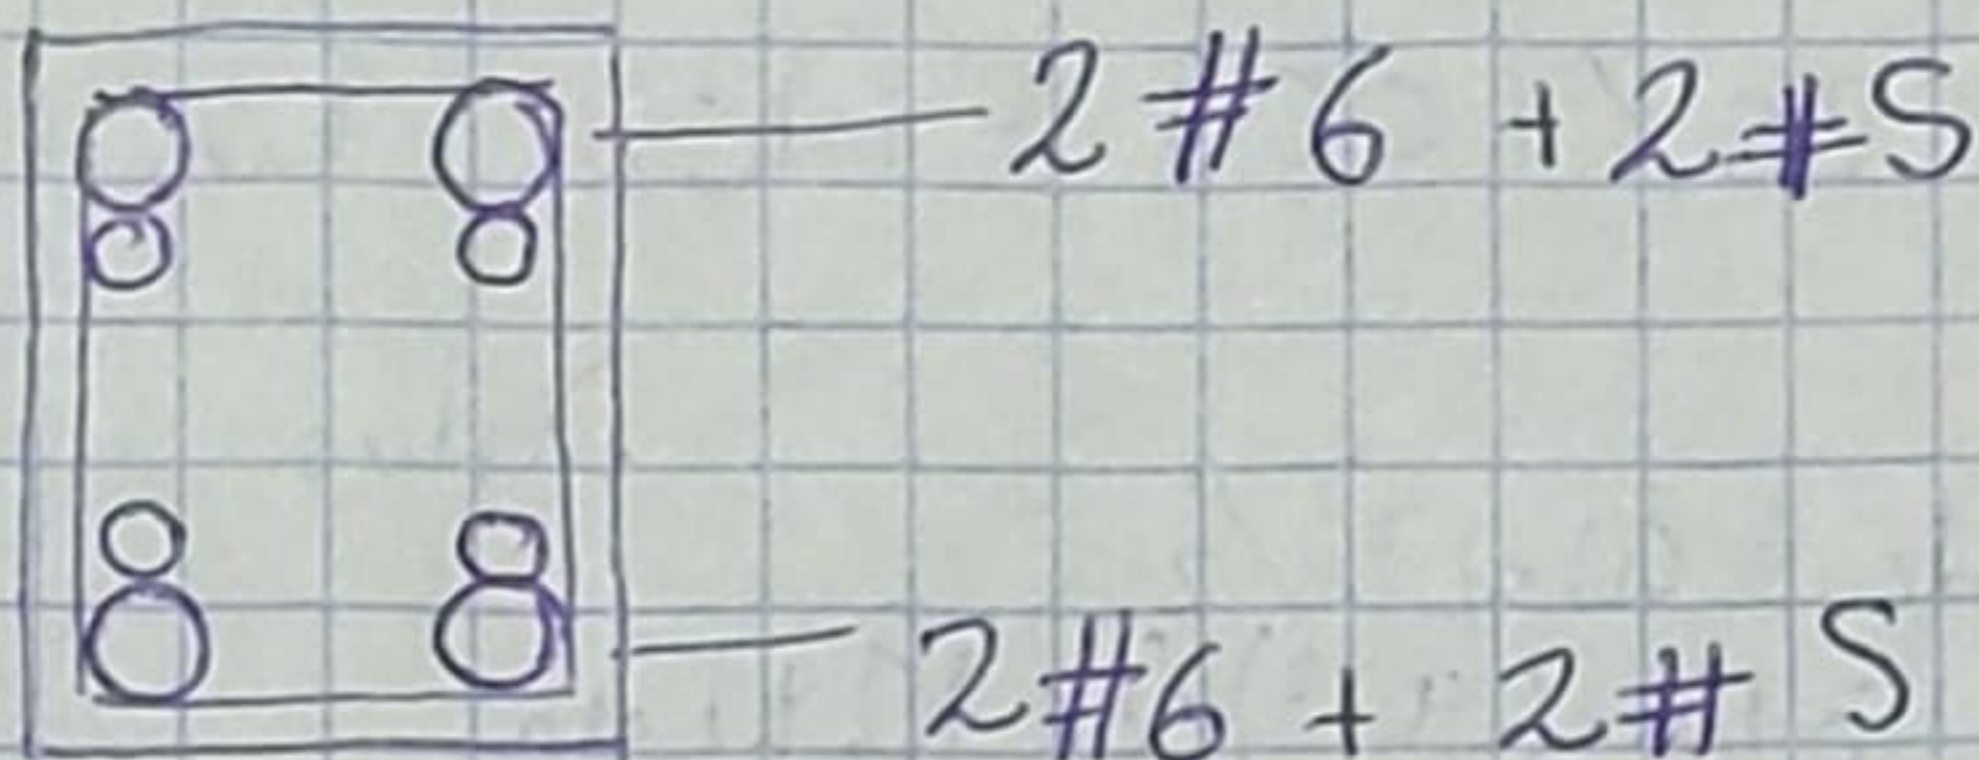 2#6 + 2#5
2#6 + 2#5